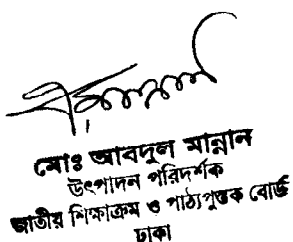 মোঃ আবদুল মান্নান
উৎপাদন পরিদর্শক
জাতীয় শিক্ষাক্রম ও পাঠ্যপুস্তক বোর্ড
ঢাকা